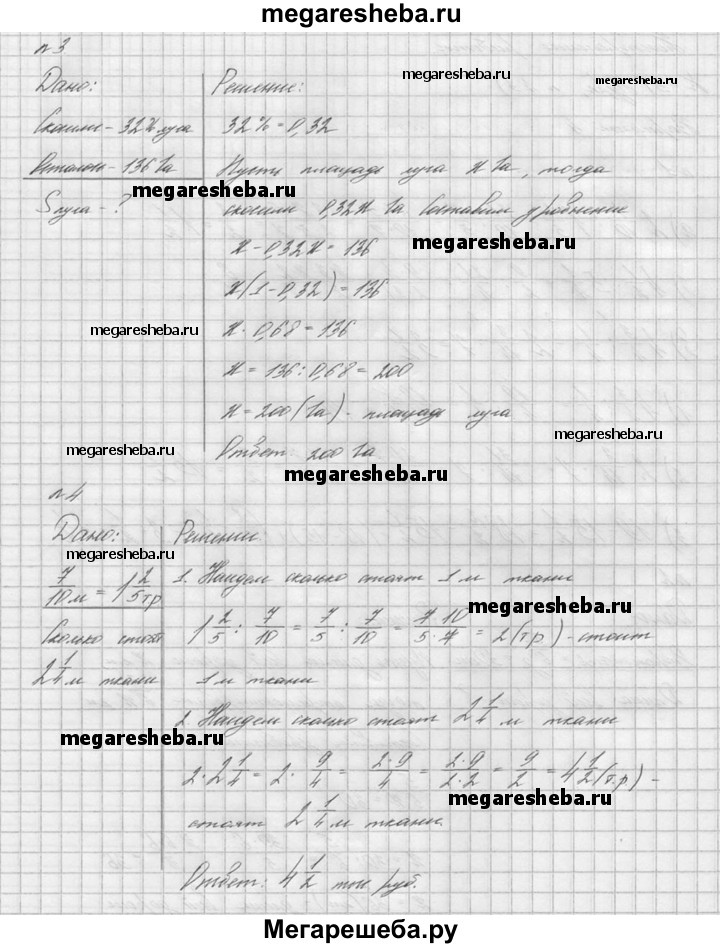 megaresheba.ru
n3
Дано:
Решение:
megaresheba.ru
megaresheba.ru
Скосили - 32% луга
32% = 0,32
Осталось - 136 га
Пусть площадь луга x га, тогда
megaresheba.ru
S луга - ?
скосили 0,32x га Составим уравнение
x - 0,32x = 136
megaresheba.ru
x(1 - 0,32) = 136
megaresheba.ru
x · 0,68 = 136
x = 136 : 0,68 = 200
x = 200 (га) - площадь луга
megaresheba.ru
megaresheba.ru
Ответ: 200 га
megaresheba.ru
n4
Дано:
Решение
megaresheba.ru
7/10 м = 1 2/5 тр
1. Найдем сколько стоит 1 м ткани
megaresheba.ru
Сколько стоят
1 2/5 : 7/10 = 7/5 : 7/10 = 7·10/5·7 = 2 (тр) - стоит
2 1/4 м ткани
1 м ткани
2 Найдем сколько стоят 2 1/4 м ткани
megaresheba.ru
2 · 2 1/4 = 2 · 9/4 = 2·9/4 = 2·9/2·2 = 9/2 = 4 1/2 (т.р) -
megaresheba.ru
стоят 2 1/4 м ткани.
Ответ: 4 1/2 тыс руб.
Мегарешеба.ру